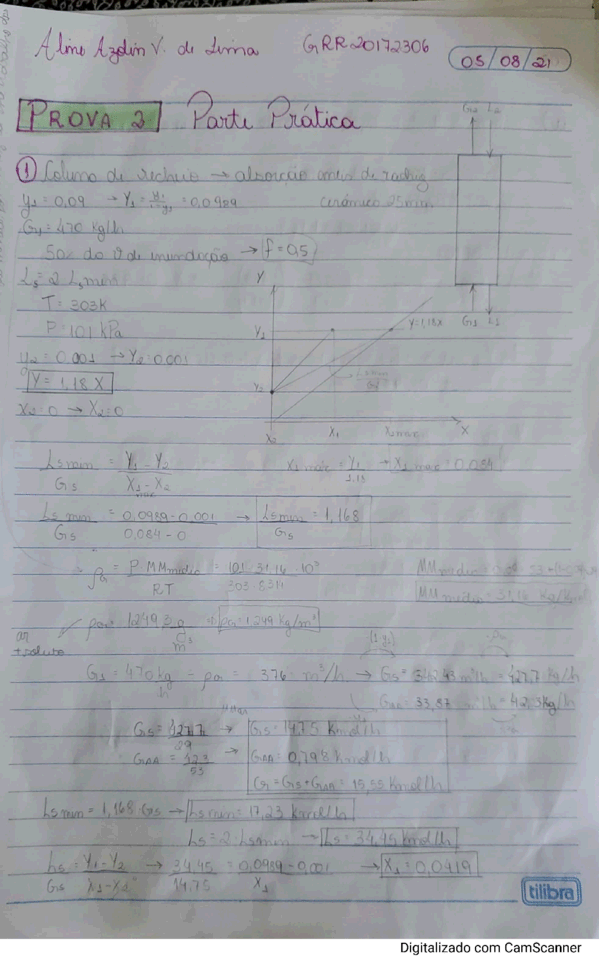 Aline Azolin V. de Lima GRR20172306
05/08/21
PROVA 2 Parte Prática
G2 L2
① Coluna de recheio → absorção anéis de raschig
y1 = 0,09 → Y1 = y1/1-y1 = 0,0989 cerâmico 25mm
G1 = 470 kg/h
50% da v de inundação → f = 0,5
Ls = 2 Ls min
T = 303K
P = 101 kPa
y2 = 0,001 → Y2 = 0,001
Y = 1,18 X
x2 = 0 → X2 = 0
Y
Y1
Y2
X2 X1 X1 max X
Y = 1,18X
G1 L1
Ls min / Gs = Y1 - Y2 / X1 max - X2 X1 max = Y1 / 1,18 → X1 max = 0,084
Ls min / Gs = 0,0989 - 0,001 / 0,084 - 0 → Ls min / Gs = 1,168
ρG = P MM médio / RT = 101 · 31,16 · 10³ / 303 · 8314
MM médio = 31,16
ρG = 1249,3 g/m³ → ρG = 1,249 kg/m³
ar + soluto
G1 = 470 kg/h ÷ ρG = 376 m³/h → Gs = 342,43 m³/h = 427,7 kg/h
= 33,87 m³/h = 42,3 kg/h
Gs = 427,7 / 29 → Gs = 14,75 Kmol/h
= 0,798 Kmol/h
= 15,55 Kmol/h
Ls min = 1,168 · Gs → Ls min = 17,23 kmol/h
Ls = 2 · Ls min → Ls = 34,45 Kmol/h
Ls / Gs = Y1 - Y2 / X1 - X2 → 34,45 / 14,75 = 0,0989 - 0,001 / X1 → X1 = 0,0419
tilibra
Digitalizado com CamScanner